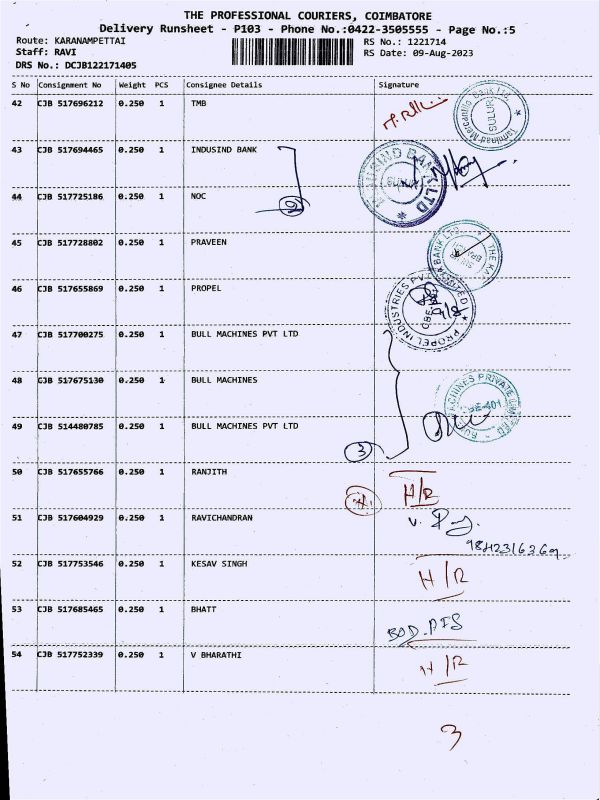 THE PROFESSIONAL COURIERS, COIMBATORE
Delivery Runsheet - P103 - Phone No.:0422-3505555 - Page No.:5
Route: KARANAMPETTAI RS No.: 1221714
Staff: RAVI RS Date: 09-Aug-2023
DRS No.: DCJB122171405
S No Consignment No Weight PCS Consignee Details Signature
42 CJB 517696212 0.250 1 TMB
Tamilnad Mercantile Bank Ltd. SULUR
43 CJB 517694465 0.250 1 INDUSIND BANK
INDUSIND BANK LTD SULUR
44 CJB 517725186 0.250 1 NOC
45 CJB 517728802 0.250 1 PRAVEEN
46 CJB 517655869 0.250 1 PROPEL
PROPEL INDUSTRIES PVT LIMITED
47 CJB 517700275 0.250 1 BULL MACHINES PVT LTD
48 CJB 517675130 0.250 1 BULL MACHINES
BULL MACHINES PRIVATE LIMITED
49 CJB 514480785 0.250 1 BULL MACHINES PVT LTD
3
50 CJB 517655766 0.250 1 RANJITH
H/R
51 CJB 517604929 0.250 1 RAVICHANDRAN
9842316269
52 CJB 517753546 0.250 1 KESAV SINGH
H/R
53 CJB 517685465 0.250 1 BHATT
54 CJB 517752339 0.250 1 V BHARATHI
H/R
3